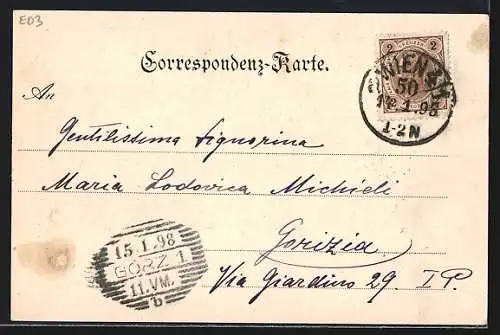 ED3
Correspondenz-Karte.
2 2
WIEN
50
1.98
1-2N
An
Gentilissima Signorina
Maria Lodovica Michieli
Gorizia
Via Giardino 29. I P.
15.1.98
GÖRZ 1
11.VM.
b